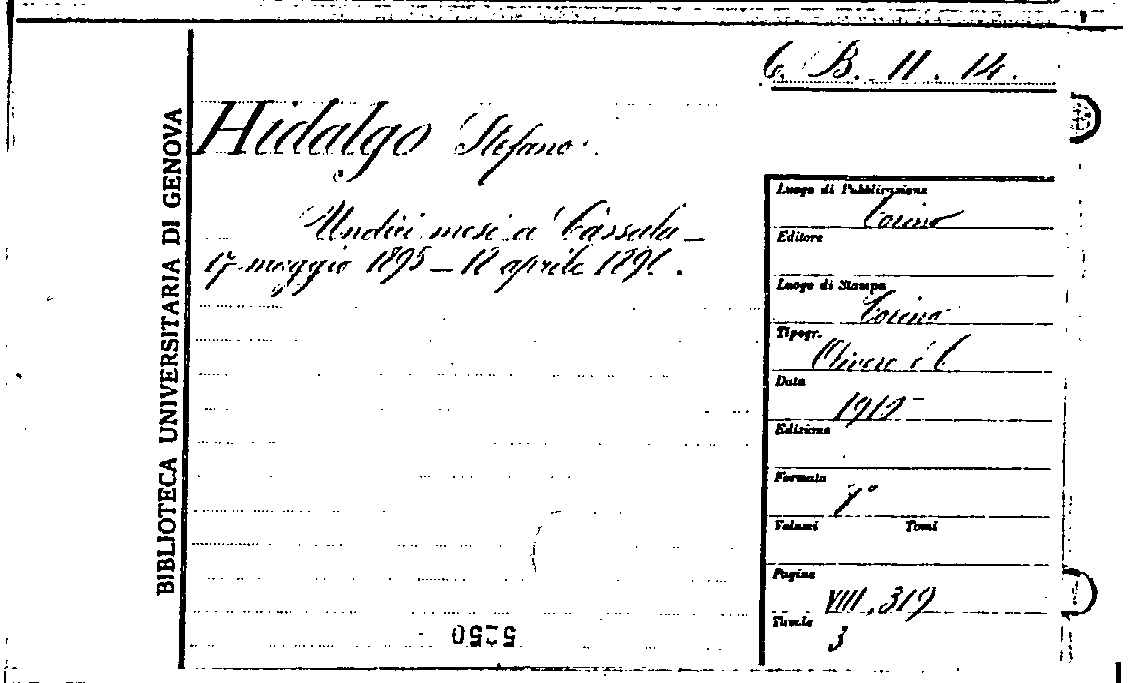 6. B. 11. 14.
BIBLIOTECA UNIVERSITARIA DI GENOVA
Hidalgo Stefano.
Undici mesi a Cassala —
17 maggio 1895 – 18 aprile 1896.
Luogo di Pubblicazione
Torino
Editore
Luogo di Stampa
Torino
Tipogr.
Olivero e C
Data
1910
Edizione
Formato
Volumi Tomi
Pagine
VIII, 319
Tavole
3